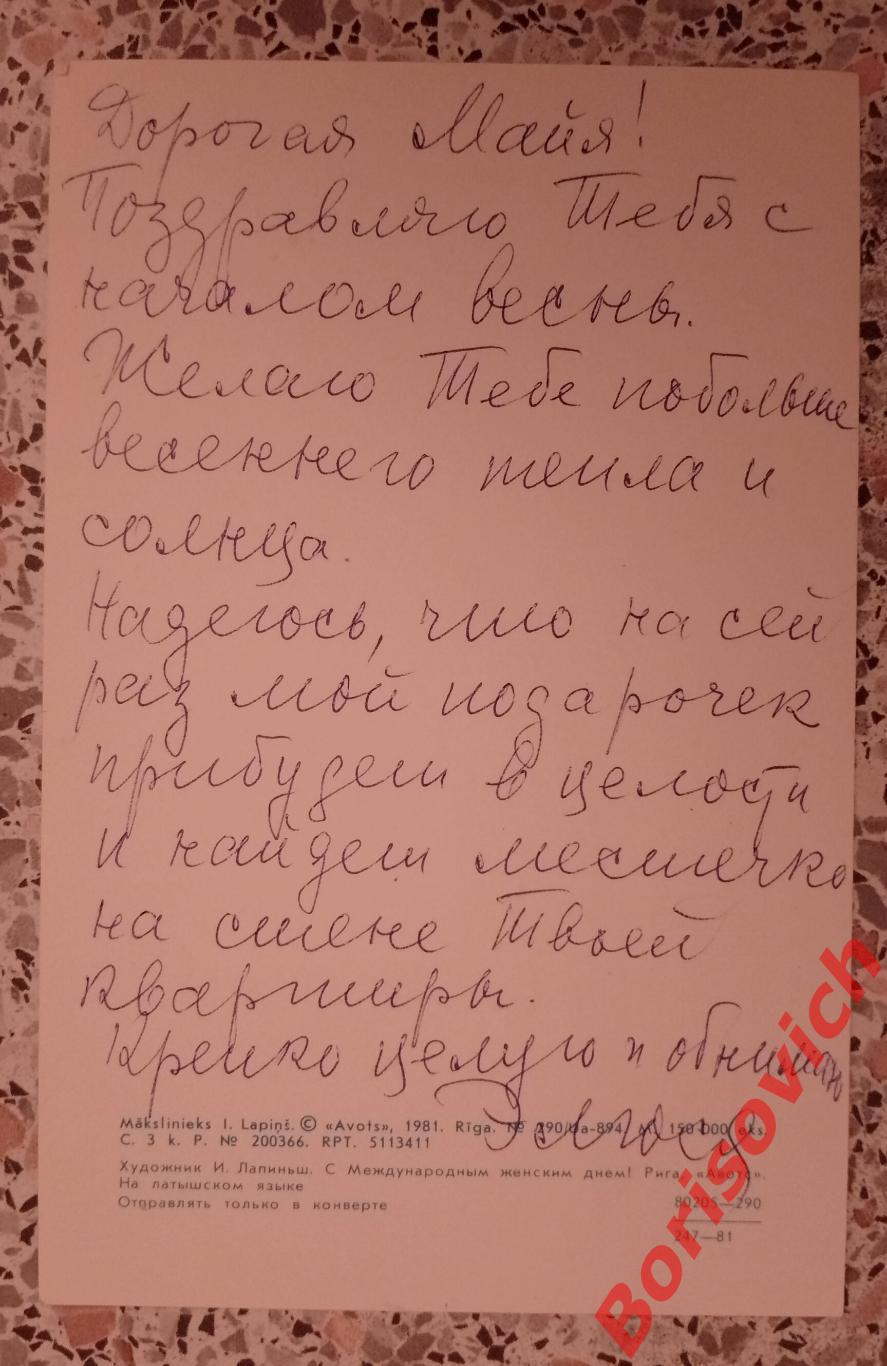 Дорогая Майя!
Поздравляю Тебя с
началом весны.
Желаю Тебе побольше
весеннего тепла и
солнца.
Надеюсь, что на сей
раз мой подарочек
прибудет в целости
и найдет местечко
на стене Твоей
квартиры.
Крепко целую и обнимаю
Mākslinieks I. Lapiņš. © «Avots», 1981. Rīga. № 290/Ua-894. M. 150 000 eks.
C. 3 k. P. № 200366. RPT. 5113411
Художник И. Лапиньш. С Международным женским днем! Рига, «Авотс».
На латышском языке
Отправлять только в конверте
80205—290
247—81
Borisovich